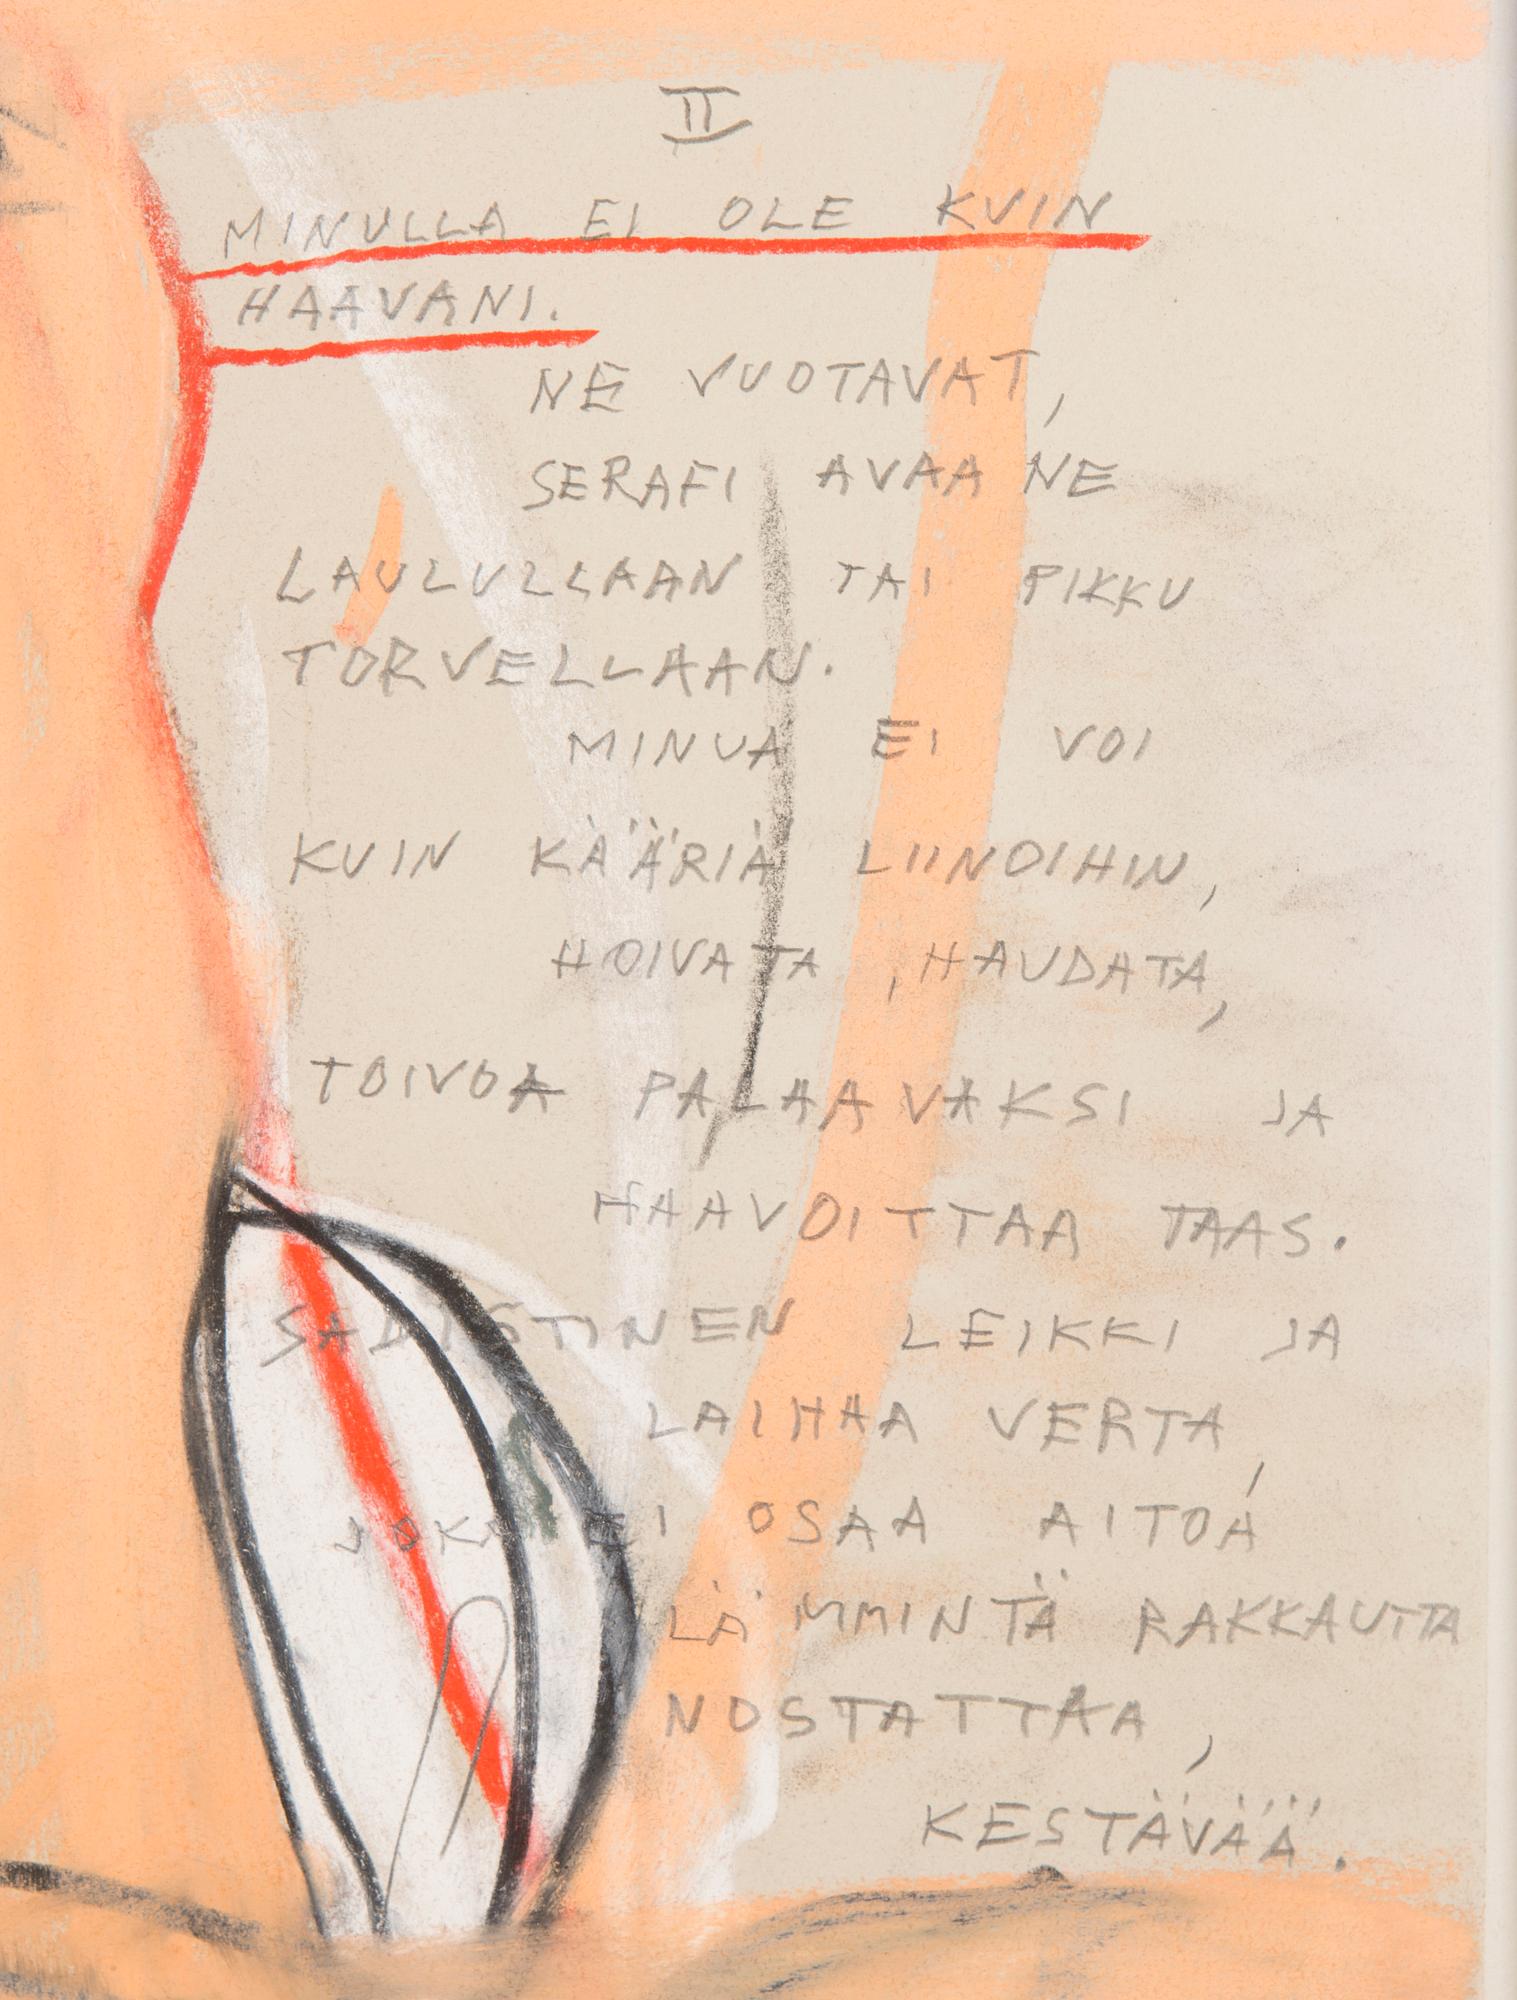 II
MINULLA EI OLE KUIN
HAAVANI.
NE VUOTAVAT,
SERAFI AVAA NE
LAULULLAAN TAI PIKKU
TORVELLAAN.
MINUA EI VOI
KUIN KÄÄRIÄ LIINOIHIN,
HOIVATA, HAUDATA,
TOIVOA PALAAVAKSI JA
HAAVOITTAA TAAS.
SADISTINEN LEIKKI JA
LAIHAA VERTA,
JOKA EI OSAA AITOA
LÄMMINTÄ RAKKAUTTA
NOSTATTAA,
KESTÄVÄÄ.